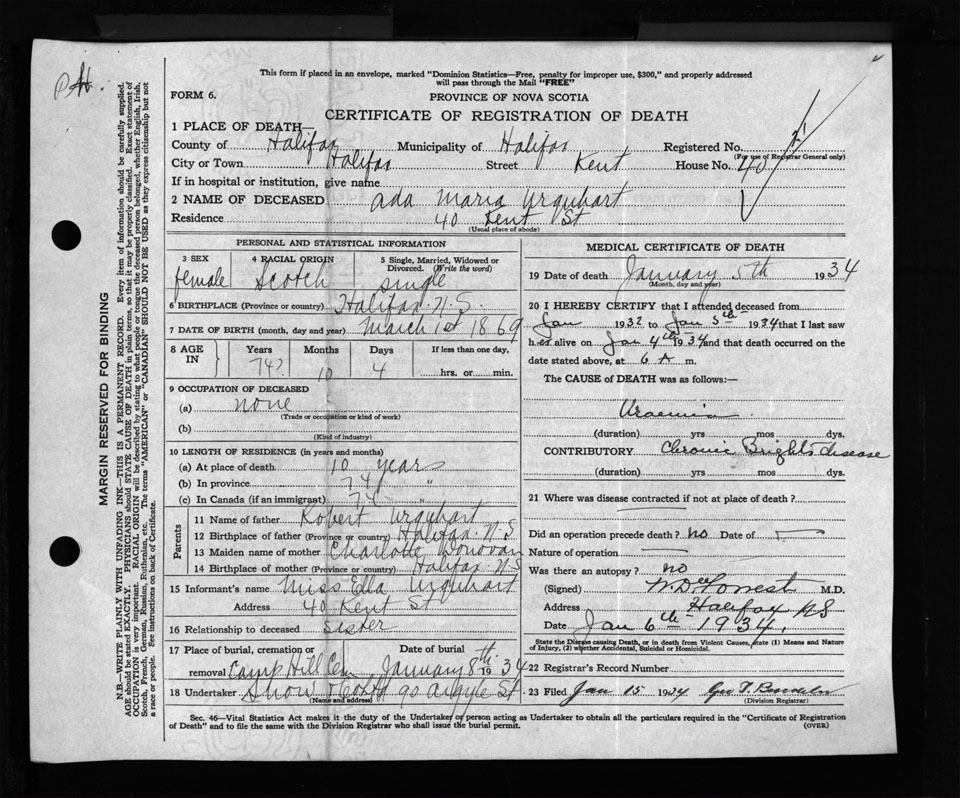 This form if placed in an envelope, marked "Dominion Statistics—Free, penalty for improper use, $300," and properly addressed
will pass through the Mail "FREE"
FORM 6.
PROVINCE OF NOVA SCOTIA
CERTIFICATE OF REGISTRATION OF DEATH
1 PLACE OF DEATH—
County of Halifax Municipality of Halifax Registered No.
(For use of Registrar General only)
City or Town Halifax Street Kent House No. 40
If in hospital or institution, give name
2 NAME OF DECEASED Ada Maria Urquhart
Residence 40 Kent St
(Usual place of abode)
PERSONAL AND STATISTICAL INFORMATION
3 SEX 4 RACIAL ORIGIN 5 Single, Married, Widowed or Divorced. (Write the word)
female Scotch single
6 BIRTHPLACE (Province or country) Halifax N.S.
7 DATE OF BIRTH (month, day and year) March 1st 1869
8 AGE IN Years Months Days If less than one day,
74? 10 4 hrs. or min.
9 OCCUPATION OF DECEASED
(a) none
(Trade or occupation or kind of work)
(b)
(Kind of industry)
10 LENGTH OF RESIDENCE (in years and months)
(a) At place of death 10 years
(b) In province 74 "
(c) In Canada (if an immigrant) 74 "
Parents
11 Name of father Robert Urquhart
12 Birthplace of father (Province or country) Halifax N.S
13 Maiden name of mother Charlotte Donovan
14 Birthplace of mother (Province or country) Halifax N.S
15 Informant's name Miss Ella Urquhart
Address 40 Kent St
16 Relationship to deceased sister
17 Place of burial, cremation or removal Camp Hill Cem Date of burial January 8th 1934
18 Undertaker Snow & Co Ltd 90 Argyle St
(Name and address)
MEDICAL CERTIFICATE OF DEATH
19 Date of death January 5th 1934
(Month, day and year)
20 I HEREBY CERTIFY that I attended deceased from
Jan 1932 to Jan 5th 1934 that I last saw
her alive on Jan 4th 1934 and that death occurred on the
date stated above, at 6 A m.
The CAUSE of DEATH was as follows:—
Uraemia
(duration) yrs mos dys.
CONTRIBUTORY Chronic Brights disease
(duration) yrs mos dys.
21 Where was disease contracted if not at place of death?
Did an operation precede death? no Date of
Nature of operation
Was there an autopsy? no
(Signed) Forrest M.D.
Address Halifax NS
Date Jan 6th 1934.
State the Disease causing Death, or in death from Violent Causes, state (1) Means and Nature
of Injury, (2) whether Accidental, Suicidal or Homicidal.
22 Registrar's Record Number
23 Filed Jan 15 1934
(Division Registrar)
Sec. 46—Vital Statistics Act makes it the duty of the Undertaker or person acting as Undertaker to obtain all the particulars required in the "Certificate of Registration
of Death" and to file the same with the Division Registrar who shall issue the burial permit.
(OVER)
MARGIN RESERVED FOR BINDING
N.B.—WRITE PLAINLY WITH UNFADING INK—THIS IS A PERMANENT RECORD. Every item of information should be carefully supplied.
AGE should be stated EXACTLY. PHYSICIANS should STATE CAUSE OF DEATH in plain terms, so that it may be properly classified. Exact statement of
OCCUPATION is very important. RACIAL ORIGIN will be described by stating to what people or tongue the deceased person belonged, whether English, Irish,
Scotch, French, German, Russian, Ruthenian, etc. The terms "AMERICAN" or "CANADIAN" SHOULD NOT BE USED as they express citizenship but not
a race or people. See instructions on back of Certificate.